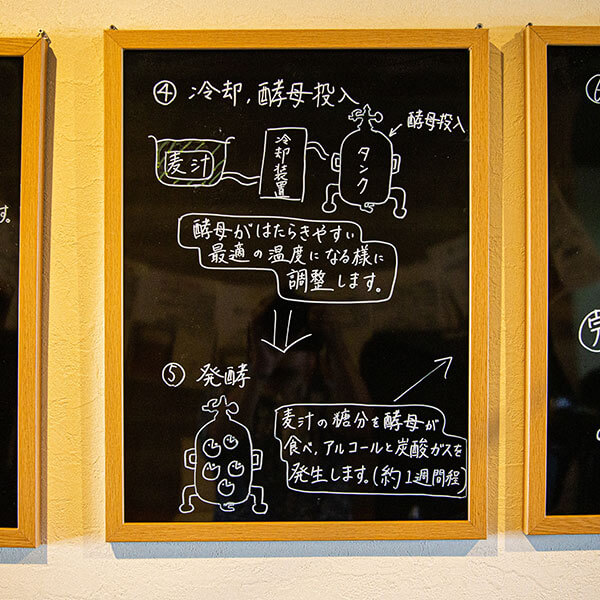 す。
④ 冷却,酵母投入
酵母投入
麦汁
冷却装置
タンク
酵母がはたらきやすい
最適の温度になる様に
調整します。
⑤ 発酵
麦汁の糖分を酵母が
食べ,アルコールと炭酸ガスを
発生します。(約1週間程)